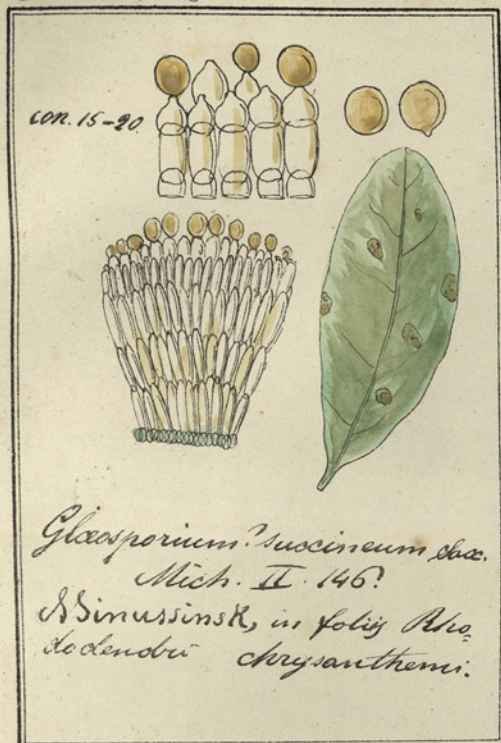 con. 15-20.
Glœosporium? succineum Sacc.
Mich. II. 146?
Minussinsk, in foliis Rho-
dodendri chrysanthemi.